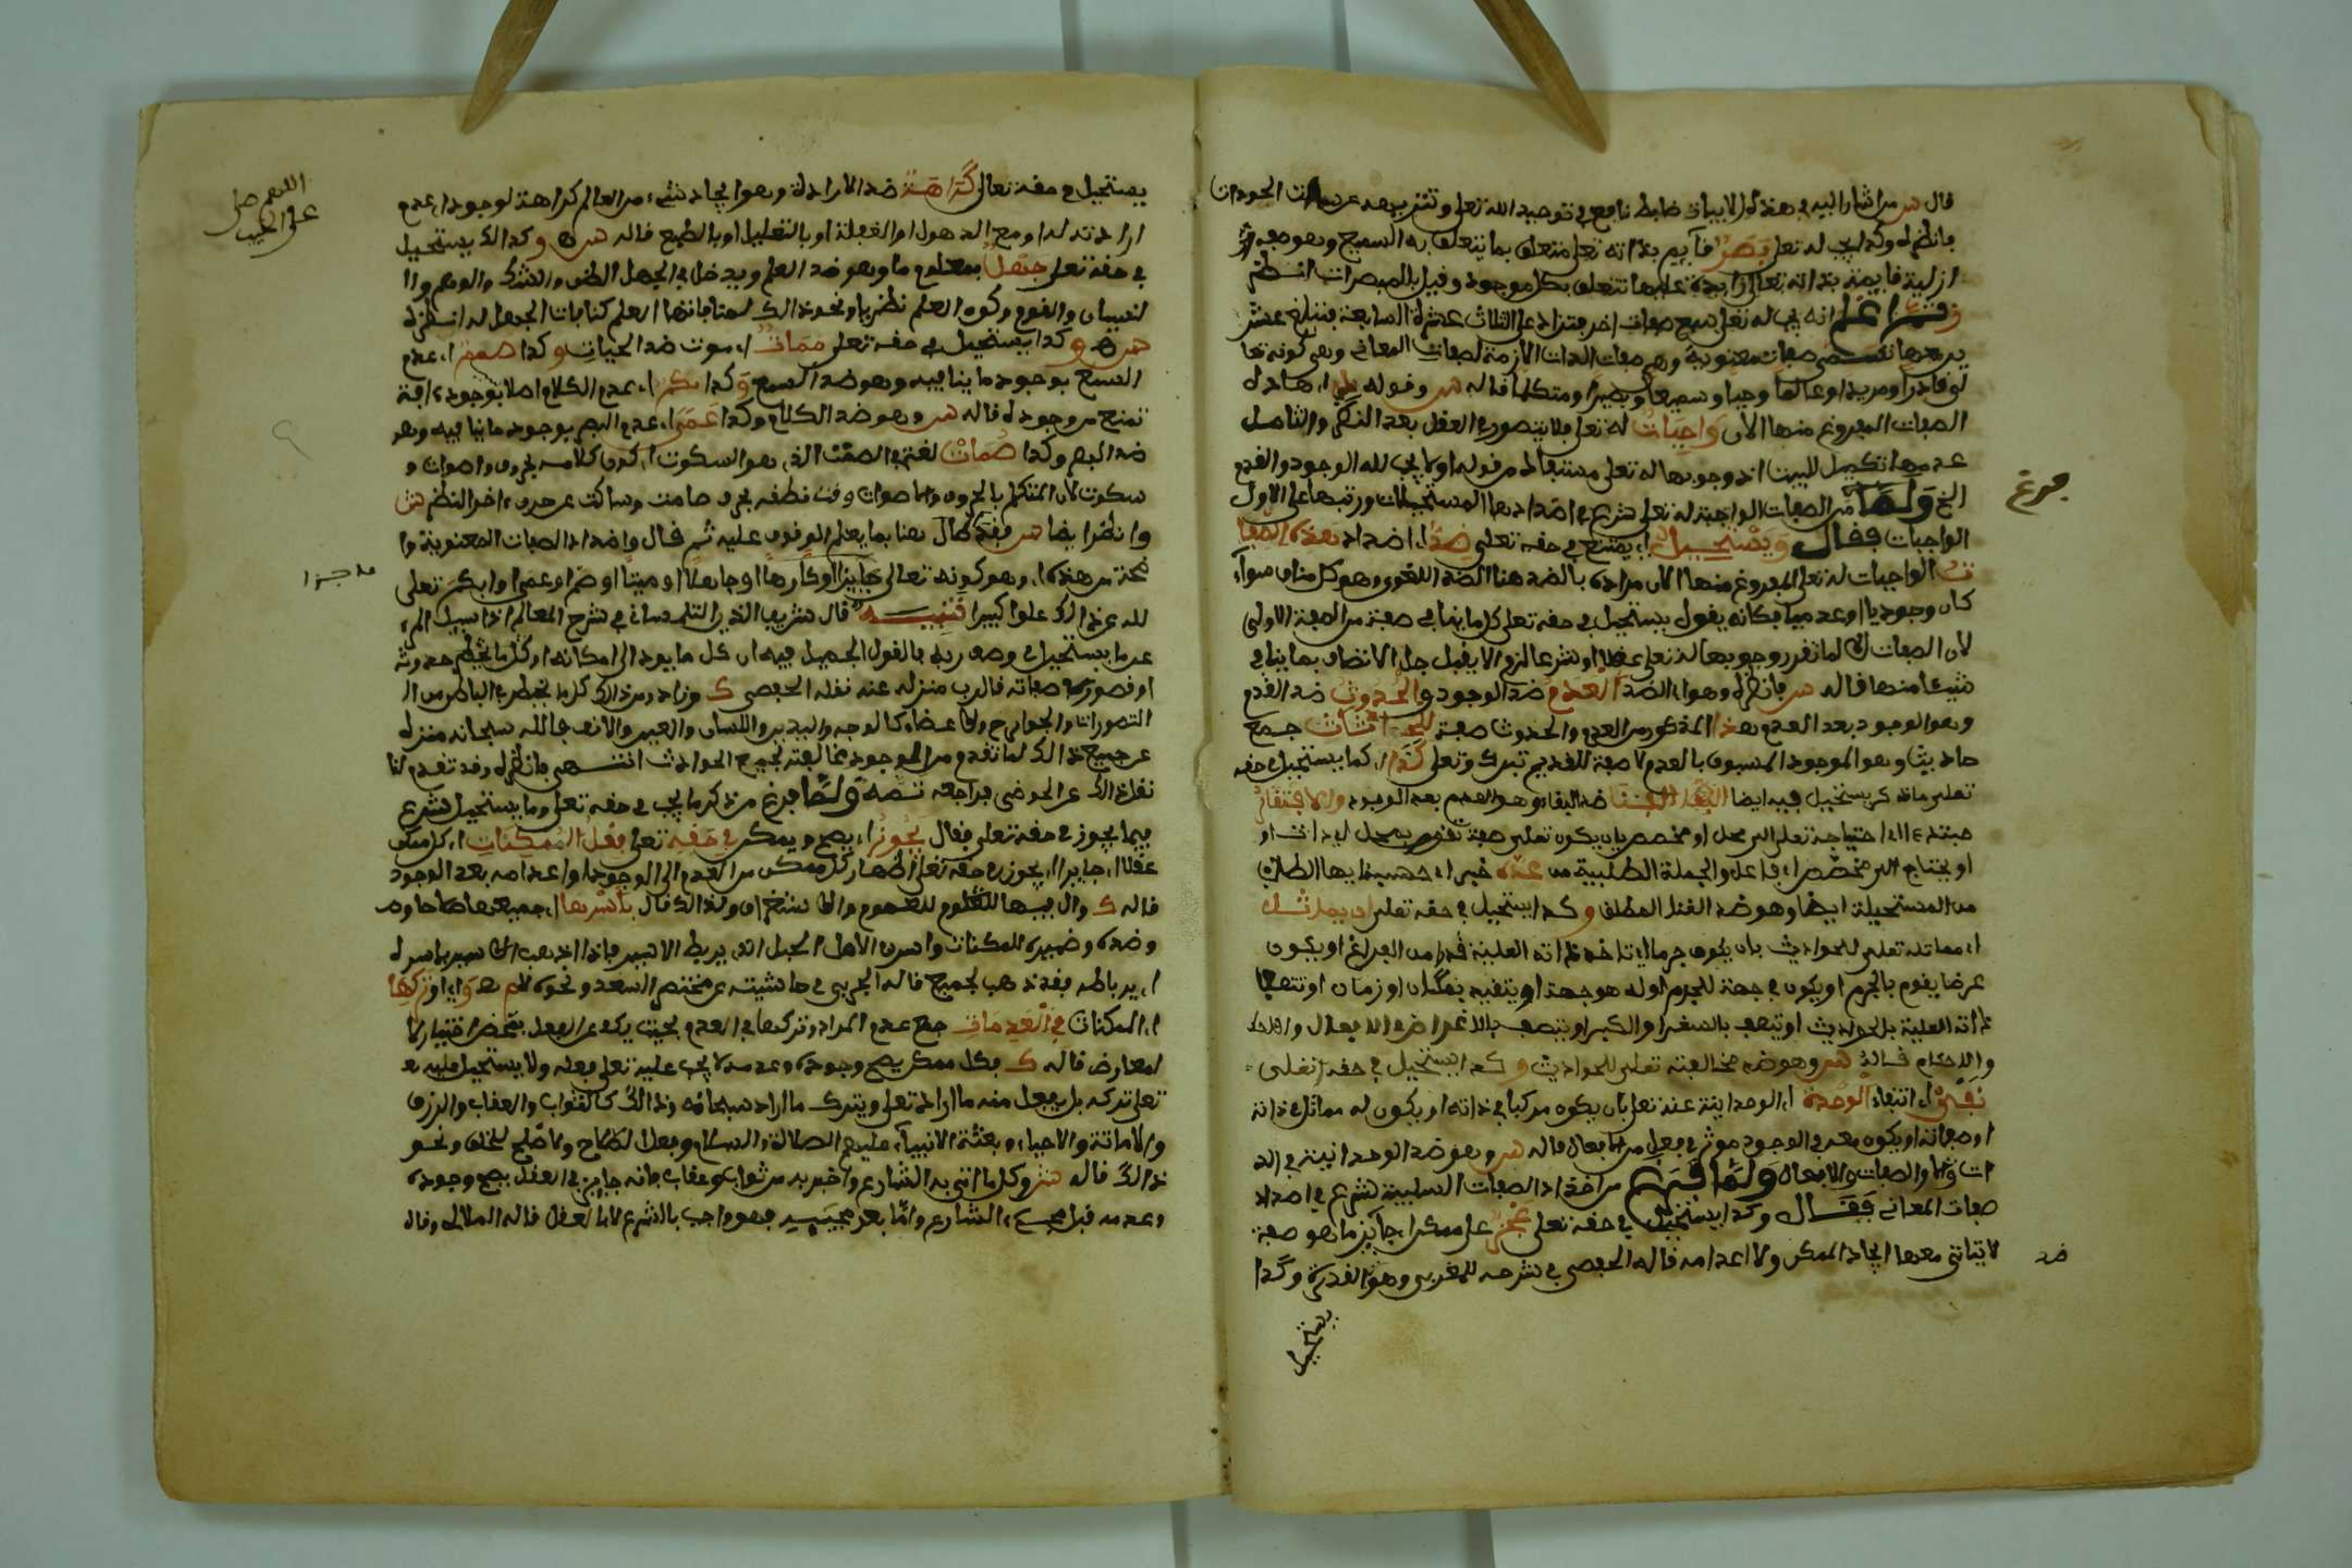 قال ش من اشار اليه في هذه الابيات ضابط نافع في توحيد الله تعلى وتنزيهه عن سمات الحودات
فانظره وكذا يجب له تعلى بَصَرٌ قآيم بذاته تعلى متعلق بما يتعلق به السميع وهو صفة
ازلية قايمة بذاته تعالى زايدة علىها تتعلق بكل موجود وقيل بالمبصرات انظره
اعلم انه يجب له تعلى سبع صفات اخر تزاد على الثلاث عشرة السابعة فتبلغ عشر
ين وهي تسمى صفات معنوية وهي صفات الذات اللازمة لصفات المعاني وهي كونه تعا
لى قادرا ومريدا وعالما وحيا وسميعا وبصيرا ومتكلما قاله ش وقوله هاذه
الصفات المفروغ منها الان وَاجِبَاتٌ له تعلى فلا يتصور في العقل بعد النظر والتامل
عدمها تكميل للبيت اذ وجوبها له تعلى مستفاد من قوله اولا يجب لله الوجود والقدم
الخ وَلَمَّا من الصفات الواجبة له تعلى شرع في اضدادها المستحيلات ورتبها على الاول
الواجبات فقال وَيَسْتَحِيلُ اي يمتنع في حقه تعلى ضدا اضداد هذه الصفا
ت الواجبات له تعلى المفروغ منها الان مراده بالضد هنا الضد اللغوي وهو كل مناف سوآء
كان وجوديا او عدميا فكانه يقول يستحيل في حقه تعلى كل ما ينافي صفة من الصفة الاولى
لان الصفات لما تقرر وجوبها له تعلى عقلا او شرعا لزم الا يقبل جل الاتصاف بما ينافي
شيئا منها قاله ش فانظره وهو اي الضد العَدَمُ ضد الوجود والحُدُوثُ ضد القدم
وهو الوجود بعد العدم هذا المذكور من العدم والحدوث صفة للحادثات جمع
حادث وهو الموجود المسبوق بالعدم لا صفة للقديم تبرك وتعلى كَذَا اي كما يستحيل في حقه
تعلى ما ذكر يستحيل فيه ايضا الفَنَا ضد البقاء وهو العدم بعد الوجود والافتقار
مبتدء اي احتياجه تعلى الى محل او مخصص بان يكون تعلى صفة تقوم بمحل اي ذات او
او يحتاج الى مخصص اي فاعل والجملة الطلبية من عده خبر
من المستحيلة ايضا وهو ضد الغنا المطلق وكذا يستحيل في حقه تعلى ان يماثل
اي مماثلته تعلى للحوادث بان يكون جرما اي تاخذ ذاته العلية قدرا من الفراغ او يكون
عرضا يقوم بالجرم او يكون في جهة للجرم او له هو جهة او يتقيد بمكان او زمان او تتصف
ذاته العلية بالحوادث او يتصف بالصغر او الكبر او يتصف بالاغراض في الافعال
والاحكام قاله ش وهو ضد مخالفته تعلى للحوادث وكذا يستحيل في حقه تعلى
نَفْيُ اي انتفاء الوَحْدة اي الوحدانية عنه تعلى بان يكون مركبا في ذاته او يكون له مماثل في ذاته
او صفاته او يكون معه في الوجود موثر في فعل من الافعال قاله ش وهو ضد الوحدانية في الذ
ات والصفات والافعال وَلَمَّا فَرَغَ من اضداد الصفات السلبية شرع في اضداد
صفات المعاني فَقَال وكذا يستحيل في حقه تعلى عَجْزٌ عن ممكن اي جايز ما وهو صفة
لا يتاتى معها ايجاد الممكن ولا اعدامه قاله الحفصي في شرحه للمقربي وهو ضد القدرة وكذا
يستحيل
فرغ
ضد
اللهم صل
على الحبيب
يستحيل في حقه تعالى كَرَاهَةٌ ضد الارادة وهو ايجاد شيء من العالم كراهة لوجوده اي عدم
ارادته له او مع الذهول او الغفلة او بالتعليل او بالطبع قاله ش وكذلك يستحيل
في حقه تعلى جَهْلٌ بمعلوم ما وهو ضد العلم ويدخل في الجهل الظن والشك والوهم وا
لنسيان والنوم وكون العلم نظريا ونحو ذالك لمنافاتها العلم كمنافات الجهل له انظره
ش وكذا يستحيل في حقه تعلى مَمَاتٌ اي موت ضد الحيات وكذا صمم اي عدم
السمع بوجود ما ينافيه وهو ضد السمع وَكذا بكم اي عدم الكلام اصلا بوجود ءافة
تمنع من وجوده قاله ش وهو ضد الكلام وكذا عَمَى اي عدم البصر بوجود ما ينافيه وهو
ضد البصر وكذا صُمَاتٌ لغة في الصمت الذي هو السكوت اي كون كلامه بحروف واصوات و
سكوت لان المتكلم بالحروف والاصوات وقت نطقه بحرف صامت وساكت عن حرف ءاخر انظر ش
وانظر ايضا ش فقد طال هنا بما يعلم بالوقوف عليه ثم قال واضداد الصفات المعنوية وا
ضحة من هذه اي وهو كونه تعالى عاجزا او كارها او جاهلا او ميتا او اصم او اعمى او ابكم تعلى
الله عن ذالك علوا كبيرا تَنْبِيه قال شريف الدين التلمساني في شرح المعالم اذا سيل المرء
عن ما يستحيل في وصف ربه فالقول الجميل فيه ان كل ما يودي الى امكانه او كل ما يقتضي حدوثه
او قصورا في صفاته فالرب منزه عنه نقله الحفصي ك وزاد ومن ذالك كل ما يخطر في البال من ا
لتصورات والجوارح والاعضاء كالوجه واليدين واللسان والعين والانف فالله سبحانه منزه
عن جميع ذالك لما تقدم من وجود مخالفته لجميع الحوادث انتهى فانظره وقد تقدم لنا
نقل ذالك عن الحوضي فراجعه ثمة وَلَمَّا فرغ من ذكر ما يجب في حقه تعلى وما يستحيل شرع
فيما يجوز في حقه تعلى فقال يَجُوزُ اي يصح ويمكن فِي حَقِّهِ تعلى فِعْلُ المُمْكِنَاتِ اي كل ممكن
عقلا اي جايزا اي يجوز في حقه تعلى اظهار كل ممكن من العدم الى الوجود او اعدامه بعد الوجود
قاله ك وال فيها للعموم والاستغراق ولذالك قال بِأَسْرِهَا اي جميعها
وضده وضميره للممكنات والاسر في الاصل الحبل الذي يربط الاسير فاذا ذهب الاسير باسره
اي برباطه فقد ذهب بجميعه قاله الجربي في حاشيته عن مختصر السعد ونحوه وَ اي او تركها
اي الممكنات فِي العَدَمَاتِ جمع عدم المراد وتركها في العدم بحيث يكف عن الفعل بمحض اختياره لا
لمعارض قاله ك فكل ممكن يصح وجوده وعدمه لا يجب عليه تعلى فعله ولا يستحيل عليه
تعلى تركه بل يفعل منه ما اراد تعلى ويترك ما اراد سبحانه وذالك كالثواب والعقاب والرزق
والاماتة والاحياء وبعثة الانبيآء عليهم الصلاة والسلام وفعل الصلاح والاصلح للخلق ونحو
ذالك قاله ش وكل ما اتى به الشارع واخبر به من ثواب وعقاب فانه جايز في العقل يصح وجوده
وعدمه قبل مجيء الشارع واما بعد مجييه فهو واجب بالشرع لا بالعقل قاله الملالي وقال
عاجزا